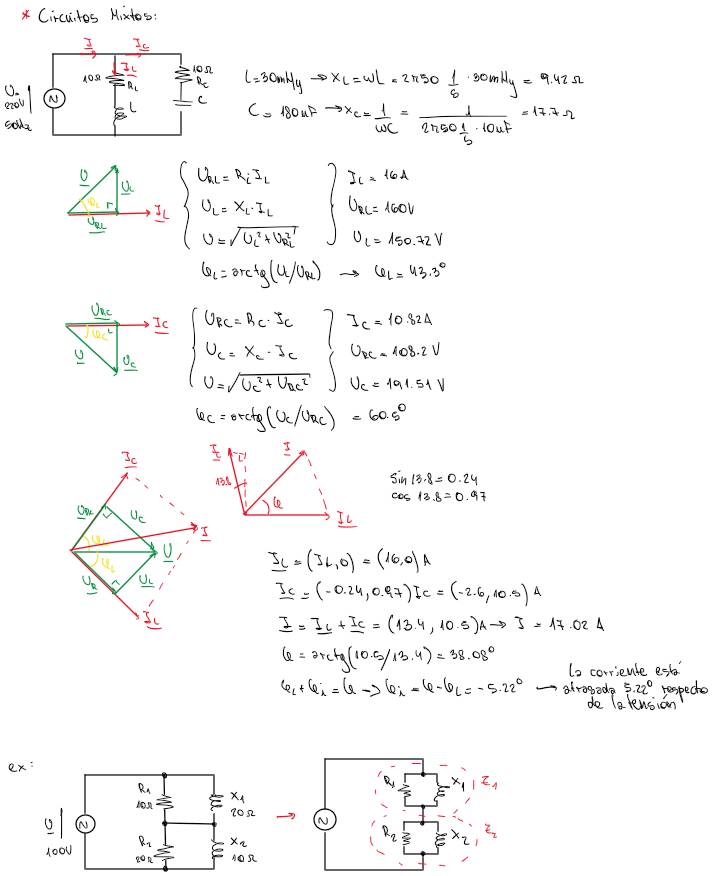 * Circuitos Mixtos:
I
Ic
IL
10Ω
RL
L
10Ω
Rc
C
U=
220V
50Hz
L=30mHy → XL=wL = 2π50 1/s · 30mHy = 9.42Ω
C = 180uF → Xc = 1/wC = 1/(2π50 1/s · 10uF) = 17.7Ω
U
UL
φL
URL
IL
URL = RL·IL
IL = 16A
UL = XL·IL
URL = 160V
U = √(UL²+URL²)
UL = 150.72V
φL = arctg(UL/URL) → φL = 43.3°
URC
Ic
φC
U
Uc
URC = Rc·Ic
Ic = 10.82A
Uc = Xc·Ic
URC = 108.2V
U = √(Uc²+URC²)
Uc = 191.51V
φC = arctg(Uc/URC) = 60.5°
Ic
URC
Uc
φC
φL
I
U
UR
UL
IL
Ic
I
13.8
φ
IL
Sin 13.8 = 0.24
cos 13.8 = 0.97
IL = (IL,0) = (16,0) A
Ic = (-0.24, 0.97) Ic = (-2.6, 10.5) A
I = IL + Ic = (13.4, 10.5)A → I = 17.02 A
φ = arctg(10.5/13.4) = 38.08°
φL+φi = φ → φi = φ-φL = -5.22° → La corriente está
atrasada 5.22° respecto
de la tensión
ex:
U
100V
R1
10Ω
X1
20Ω
R2
20Ω
X2
10Ω
→
R1
X1
Z1
R2
X2
Z2